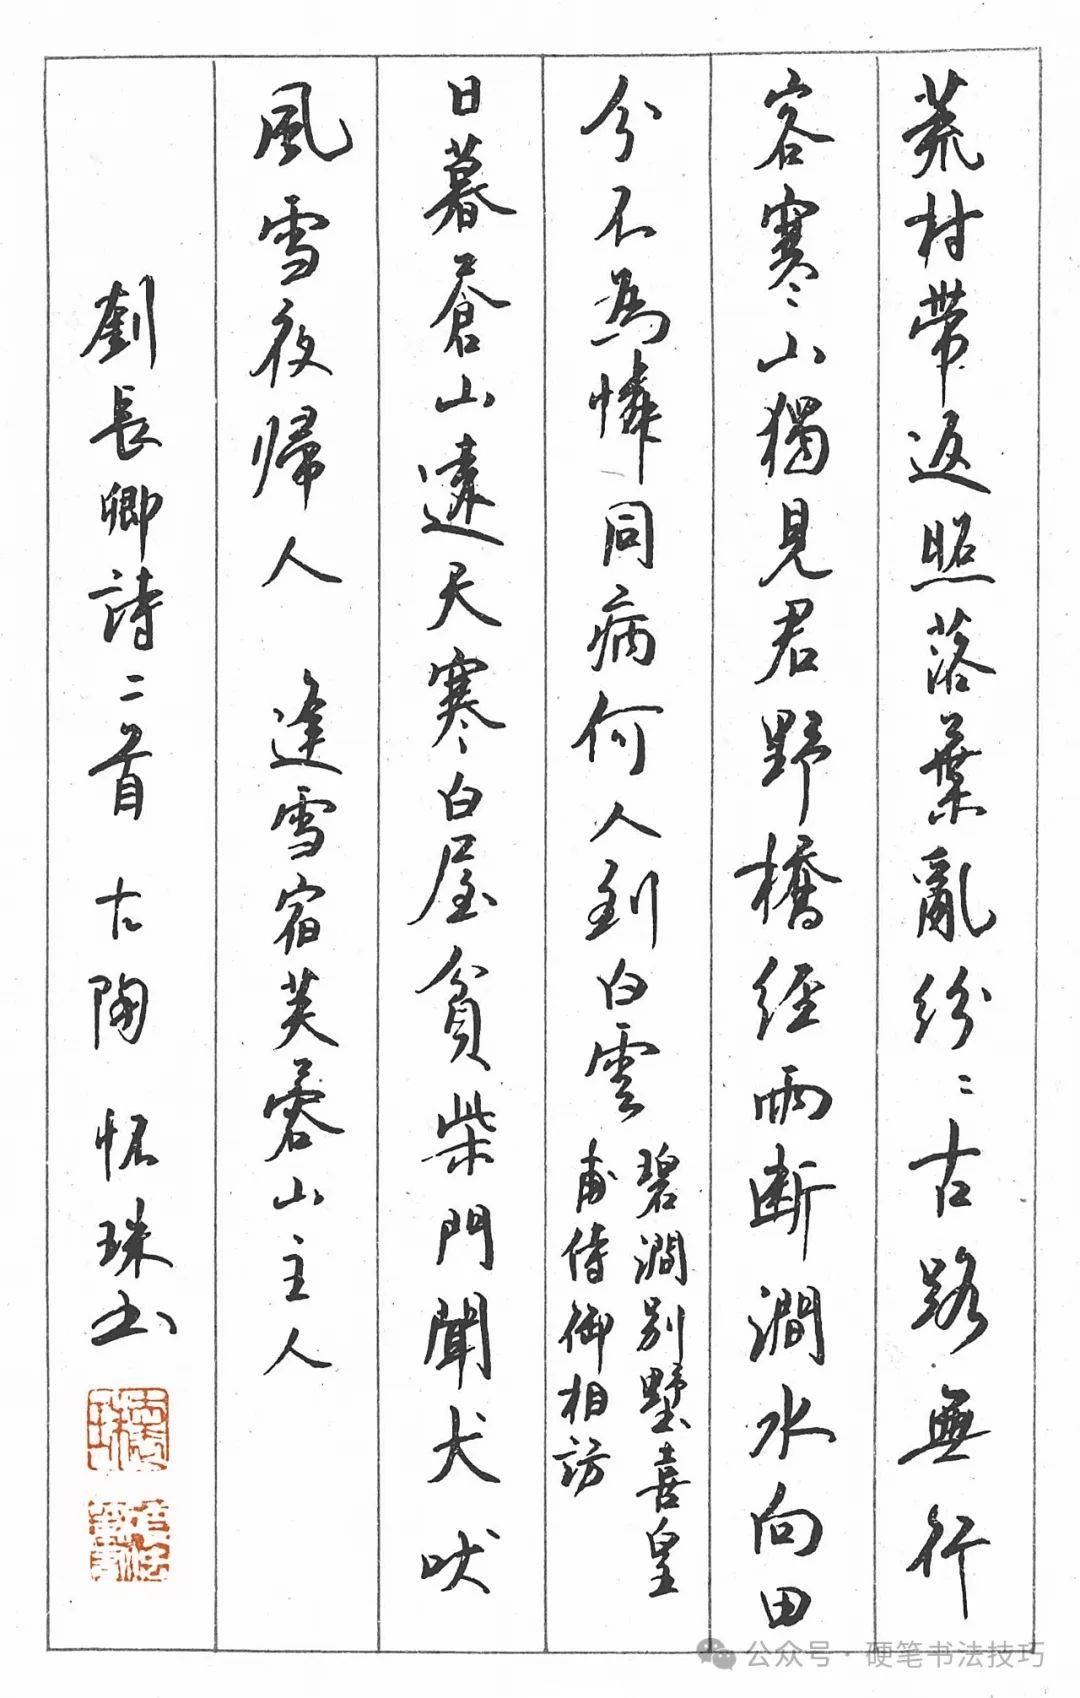 荒村带返照落葉亂紛〻古路無行
客寒山獨見君野橋經雨断澗水向田
分不為憐同病何人到白雲
碧澗别墅喜皇
甫侍御相訪
日暮蒼山遠天寒白屋貧柴門聞犬吠
風雪夜歸人 逢雪宿芙蓉山主人
劉長卿詩二首 古陶 怀珠书
公众号·硬笔书法技巧